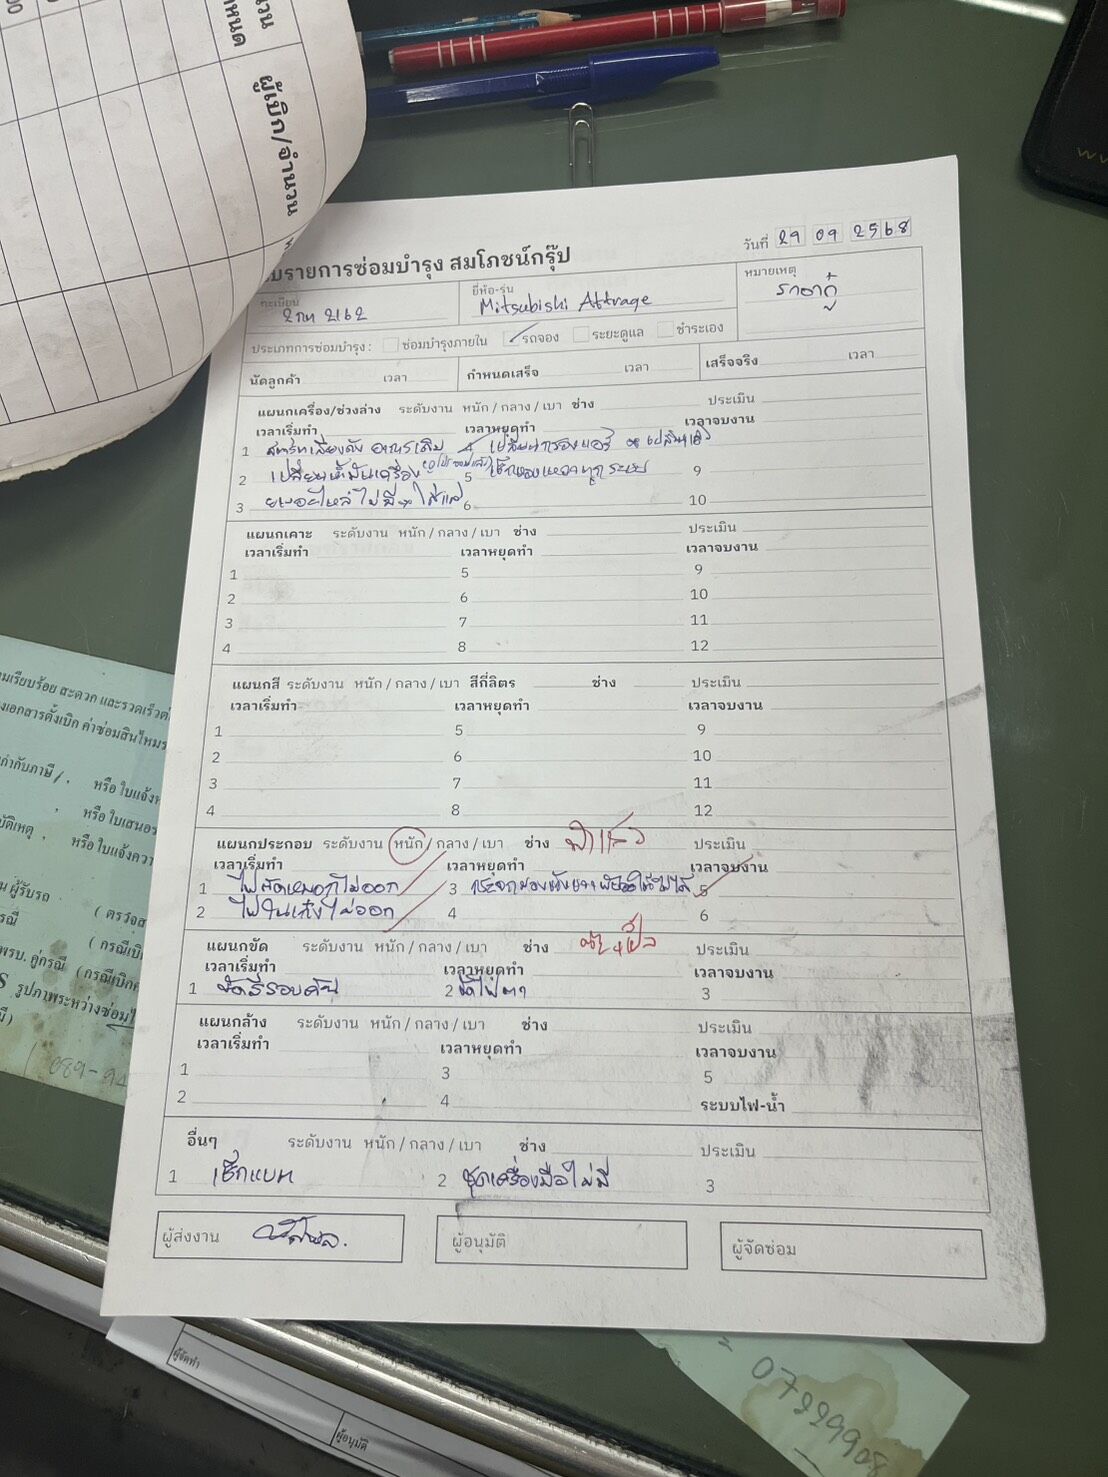 ผู้เบิก/จำนวน
ใบรายการซ่อมบำรุง สมโภชน์กรุ๊ป
วันที่ 29 09 2568
ทะเบียน 2กท 2162
ยี่ห้อ-รุ่น Mitsubishi Attrage
หมายเหตุ ราอากู้
ประเภทการซ่อมบำรุง : ซ่อมบำรุงภายใน รถจอง ระยะดูแล ชำระเอง
นัดลูกค้า เวลา กำหนดเสร็จ เวลา เสร็จจริง เวลา
แผนกเครื่อง/ช่วงล่าง ระดับงาน หนัก / กลาง / เบา ช่าง ประเมิน
เวลาเริ่มทำ เวลาหยุดทำ เวลาจบงาน
1 สตาร์ทเสียงดัง อาการเดิม 4 เปลี่ยนกรองแอร์
2 เปลี่ยนน้ำมันเครื่อง 5 เช็กของเหลวทุกระบบ 9
3 ยางอะไหล่ไม่มี 6 10
แผนกเคาะ ระดับงาน หนัก / กลาง / เบา ช่าง ประเมิน
เวลาเริ่มทำ เวลาหยุดทำ เวลาจบงาน
1 5 9
2 6 10
3 7 11
4 8 12
แผนกสี ระดับงาน หนัก / กลาง / เบา สีกี่ลิตร ช่าง ประเมิน
เวลาเริ่มทำ เวลาหยุดทำ เวลาจบงาน
1 5 9
2 6 10
3 7 11
4 8 12
แผนกประกอบ ระดับงาน หนัก / กลาง / เบา ช่าง ประเมิน
เวลาเริ่มทำ เวลาหยุดทำ เวลาจบงาน
1 ไฟตัดหมอกไม่ออก 3 กระจกมองข้างขวา 5
2 ไฟในเก๋งไม่ออก 4 6
แผนกขัด ระดับงาน หนัก / กลาง / เบา ช่าง ประเมิน
เวลาเริ่มทำ เวลาหยุดทำ เวลาจบงาน
1 ขัดสีรอบคัน 2 ขัดไฟตา 3
แผนกล้าง ระดับงาน หนัก / กลาง / เบา ช่าง ประเมิน
เวลาเริ่มทำ เวลาหยุดทำ เวลาจบงาน
1 3 5
2 4 ระบบไฟ-น้ำ
อื่นๆ ระดับงาน หนัก / กลาง / เบา ช่าง ประเมิน
1 เช็กแบต 2 ชุดเครื่องมือไม่มี 3
ผู้ส่งงาน ผู้อนุมัติ ผู้จัดซ่อม
ผู้จัดทำ
ผู้อนุมัติ